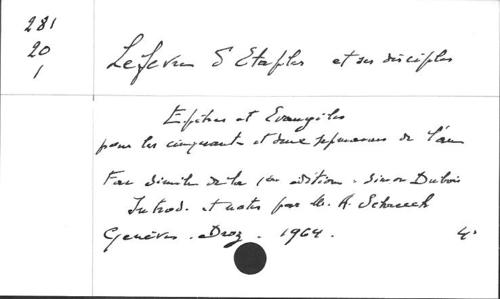 281
20
1
Lefevre d'Etaples et ses disciples
Epîtres et Evangiles
pour les cinquante et deux semaines de l'an
Fac similé de la 1ère édition. Simon Dubois
Introd. et notes par M. A. Screech
Genève. Droz. 1964. 4°